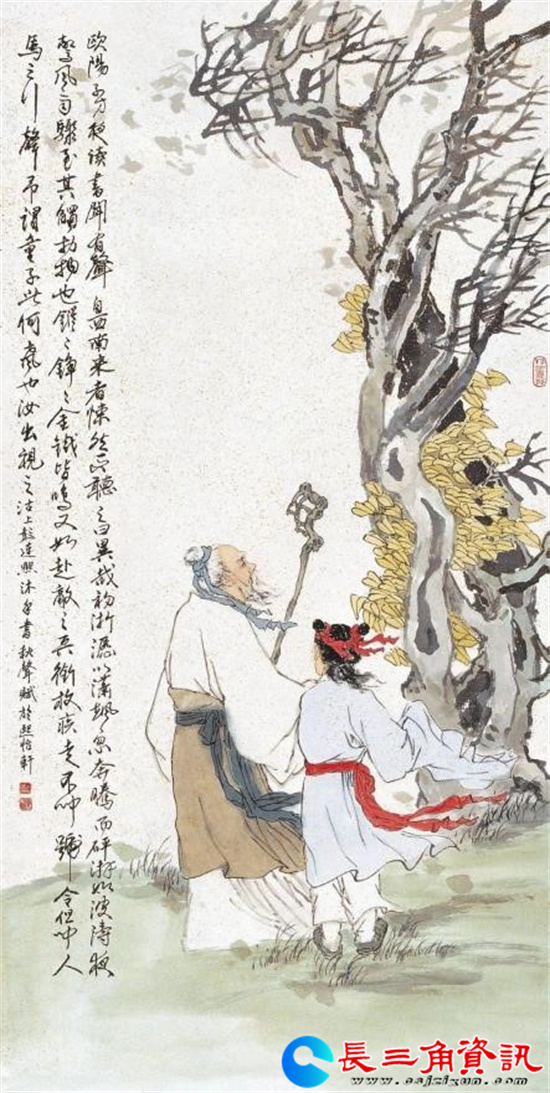 歐陽子方夜讀書聞有聲自西南來者悚然而聽之曰異哉初淅瀝以瀟颯忽奔騰而砰湃如波濤夜
驚風雨驟至其觸於物也鏦々錚々金鐵皆鳴又如赴敵之兵銜枚疾走不聞號令但聞人
馬之行聲予謂童子此何聲也汝出視之沽上彭連熙沐手書秋聲賦於熙怡軒
長三角資訊
www.csjzixun.com